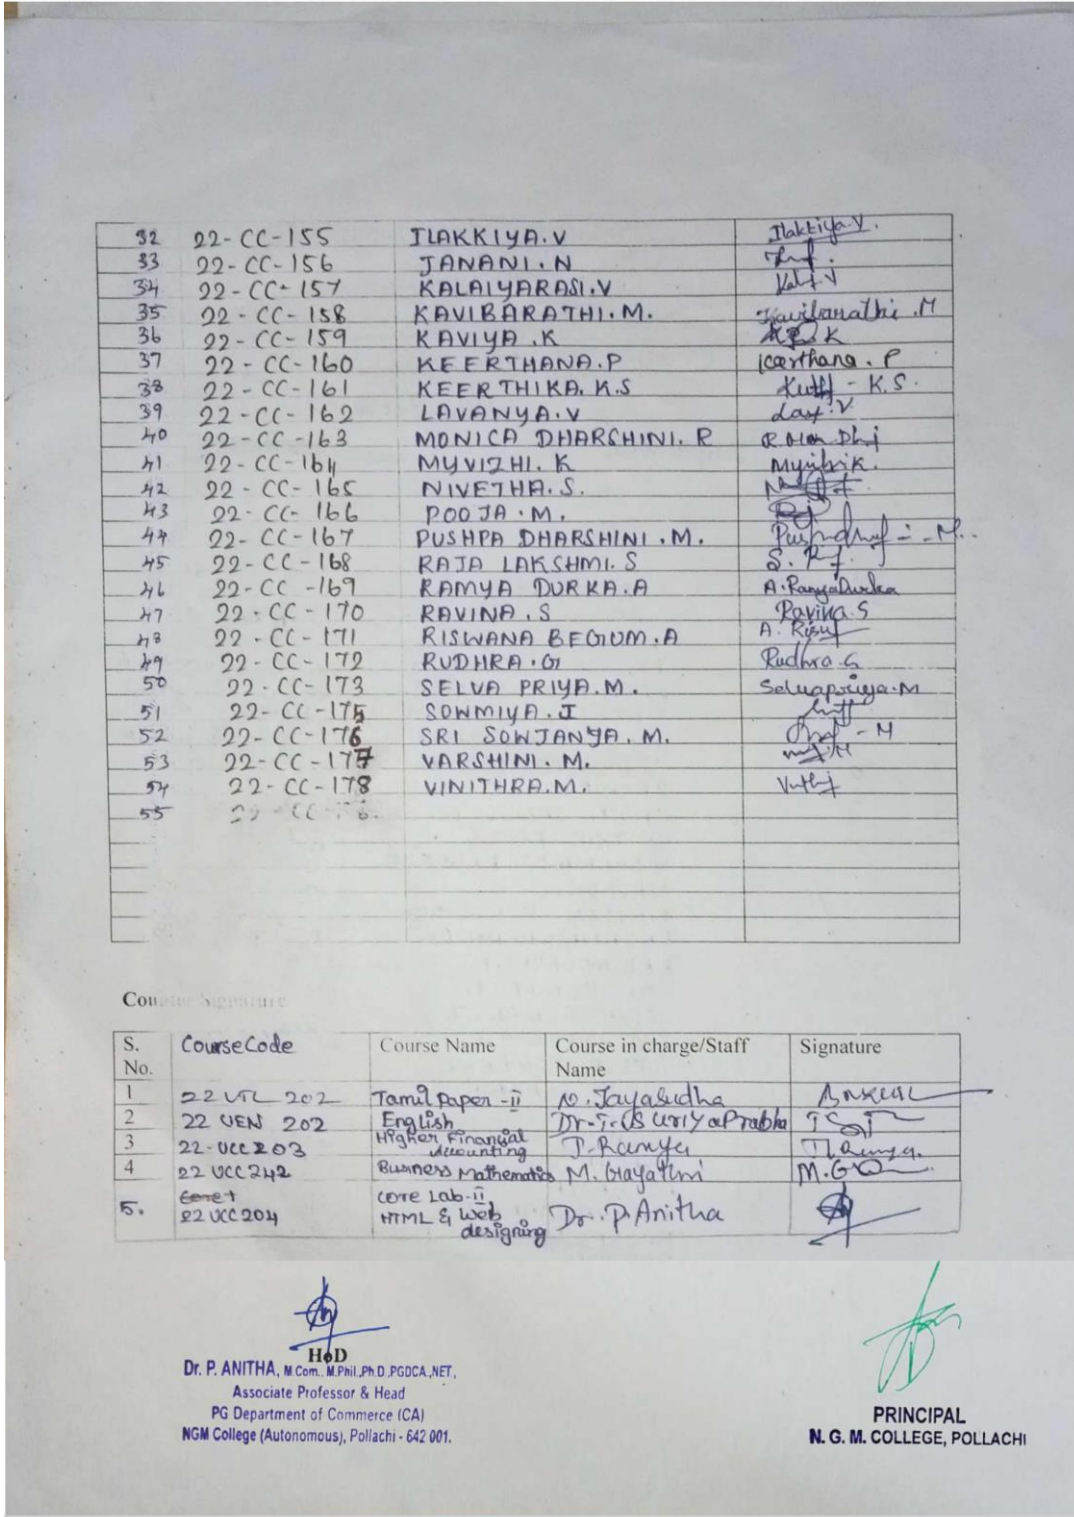 32 22-CC-155 ILAKKIYA.V Ilakkiya.V.
33 22-CC-156 JANANI.N
34 22-CC-157 KALAIYARASI.V
35 22-CC-158 KAVIBARATHI.M. Kavibarathi.M
36 22-CC-159 KAVIYA.K
37 22-CC-160 KEERTHANA.P Keerthana.P
38 22-CC-161 KEERTHIKA.K.S K.S.
39 22-CC-162 LAVANYA.V
40 22-CC-163 MONICA DHARSHINI.R
41 22-CC-164 MYVIZHI.K
42 22-CC-165 NIVETHA.S.
43 22-CC-166 POOJA.M.
44 22-CC-167 PUSHPA DHARSHINI.M.
45 22-CC-168 RAJA LAKSHMI.S
46 22-CC-169 RAMYA DURKA.A A.RamyaDurka
47 22-CC-170 RAVINA.S Ravina.S
48 22-CC-171 RISWANA BEGUM.A
49 22-CC-172 RUDHRA.G Rudhra.G
50 22-CC-173 SELVA PRIYA.M. Selvapriya.M
51 22-CC-175 SOWMIYA.J
52 22-CC-176 SRI SOWJANYA.M.
53 22-CC-177 VARSHINI.M.
54 22-CC-178 VINITHRA.M.
55
Counter Signature
S. No. CourseCode Course Name Course in charge/Staff Name Signature
1 22 UTL 202 Tamil Paper -II N. Jayasudha
2 22 UEN 202 English Dr. T.S UriyaPrabha
3 22-UCC203 Higher Financial Accounting T. Ramya T. Ramya.
4 22 UCC242 Business Mathematics M. Gayathri
5. Core 1 22UCC204 Core Lab-II HTML & Web designing Dr. P. Anitha
HoD
Dr. P. ANITHA, M.Com., M.Phil.,Ph.D.,PGDCA.,NET.,
Associate Professor & Head
PG Department of Commerce (CA)
NGM College (Autonomous), Pollachi - 642 001.
PRINCIPAL
N. G. M. COLLEGE, POLLACHI